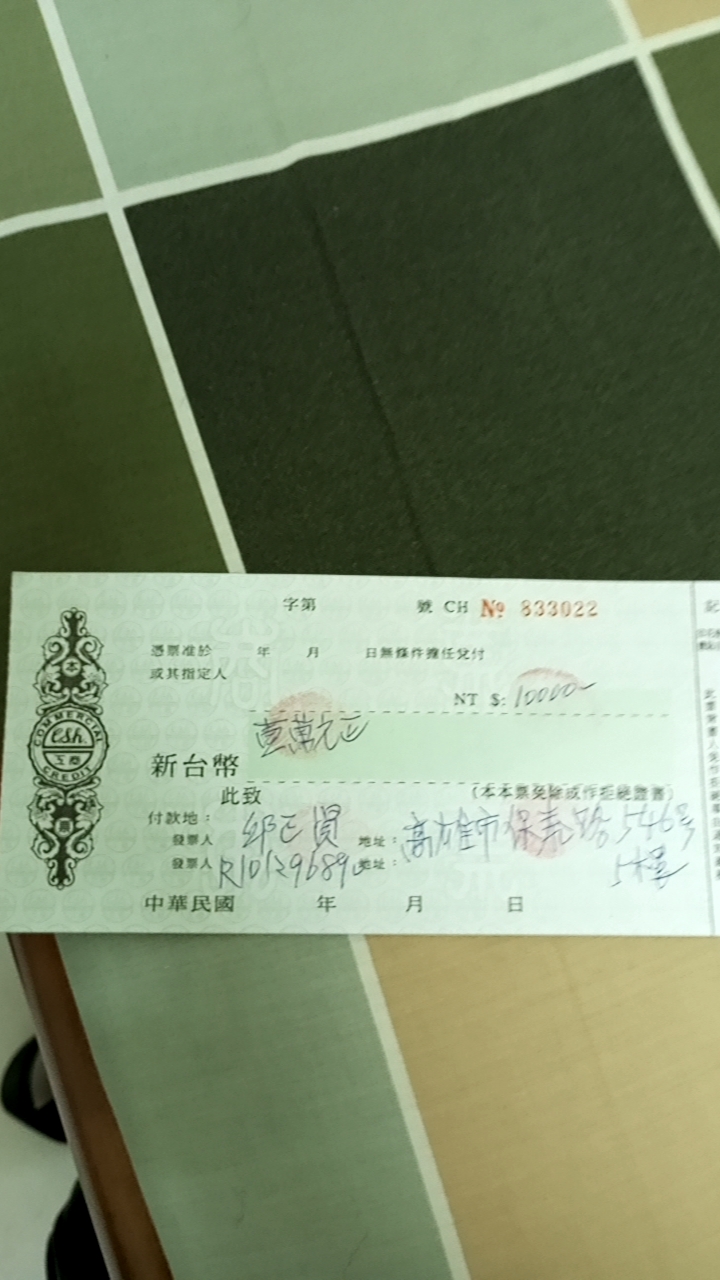 字第 號 CH № 833022
憑票准於 年 月 日無條件擔任兌付
或其指定人
NT $: 10000-
壹萬元正
新台幣
此致 (本本票免除成作拒絕證書)
付款地:
發票人 邱正貿 地址: 高雄市保泰路546号
發票人 地址: 5樓
中華民國 年 月 日
本
COMMERCIAL
Csh
工商
CREDIT
票
記